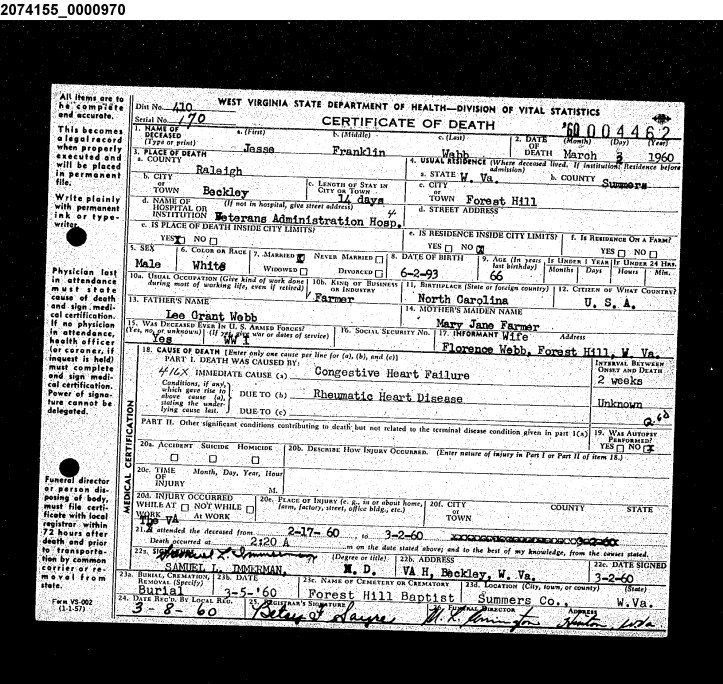 2074155_0000970
All items are to be complete and accurate.
This becomes a legal record when properly executed and will be placed in permanent file.
Write plainly with permanent ink or typewriter.
Physician last in attendance must state cause of death and sign medical certification. If no physician in attendance, health officer (or coroner, if inquest is held) must complete and sign medical certification. Power of signature cannot be delegated.
Funeral director or person disposing of body, must file certificate with local registrar within 72 hours after death and prior to transportation by common carrier or removal from state.
Form VS-002
(1-1-57)
WEST VIRGINIA STATE DEPARTMENT OF HEALTH—DIVISION OF VITAL STATISTICS
Dist No. 410
Serial No. 170
CERTIFICATE OF DEATH
'60 004462
1. NAME OF DECEASED (Type or print) a. (First) b. (Middle) c. (Last)
Jesse Franklin Webb
2. DATE OF DEATH (Month) (Day) (Year)
March 1960
3. PLACE OF DEATH
a. COUNTY
Raleigh
4. USUAL RESIDENCE (Where deceased lived. If institution: Residence before admission)
a. STATE W. Va. b. COUNTY Summers
b. CITY or TOWN Beckley
c. LENGTH OF STAY IN CITY OR TOWN 14 days
c. CITY or TOWN Forest Hill
d. NAME OF HOSPITAL OR INSTITUTION (If not in hospital, give street address)
Veterans Administration Hosp. 4
d. STREET ADDRESS
e. IS PLACE OF DEATH INSIDE CITY LIMITS?
YES X NO
e. IS RESIDENCE INSIDE CITY LIMITS?
YES NO X
f. IS RESIDENCE ON A FARM?
YES NO
5. SEX
Male
6. COLOR OR RACE
White
7. MARRIED X NEVER MARRIED
WIDOWED DIVORCED
8. DATE OF BIRTH
6-2-93
9. AGE (In years last birthday)
66
IF UNDER 1 YEAR IF UNDER 24 HRS.
Months Days Hours Min.
10a. USUAL OCCUPATION (Give kind of work done during most of working life, even if retired)
10b. KIND OF BUSINESS OR INDUSTRY
Farmer
11. BIRTHPLACE (State or foreign country)
North Carolina
12. CITIZEN OF WHAT COUNTRY?
U. S. A.
13. FATHER'S NAME
Lee Grant Webb
14. MOTHER'S MAIDEN NAME
Mary Jane Farmer
15. WAS DECEASED EVER IN U. S. ARMED FORCES?
(Yes, no, or unknown) (If yes, give war or dates of service)
Yes WW I
16. SOCIAL SECURITY NO.
17. INFORMANT Wife Address
Florence Webb, Forest Hill, W. Va.
18. CAUSE OF DEATH [Enter only one cause per line for (a), (b), and (c)]
INTERVAL BETWEEN ONSET AND DEATH
PART I. DEATH WAS CAUSED BY:
416X IMMEDIATE CAUSE (a) Congestive Heart Failure
2 weeks
Conditions, if any, which gave rise to above cause (a), stating the underlying cause last.
DUE TO (b) Rheumatic Heart Disease
Unknown
DUE TO (c)
PART II. Other significant conditions contributing to death but not related to the terminal disease condition given in part 1(a)
19. WAS AUTOPSY PERFORMED?
YES NO X
MEDICAL CERTIFICATION
20a. ACCIDENT SUICIDE HOMICIDE
20b. DESCRIBE HOW INJURY OCCURRED. (Enter nature of injury in Part I or Part II of item 18.)
20c. TIME OF INJURY Month, Day, Year, Hour
M.
20d. INJURY OCCURRED
WHILE AT WORK NOT WHILE AT WORK
20e. PLACE OF INJURY (e. g., in or about home, farm, factory, street, office bldg., etc.)
20f. CITY or TOWN COUNTY STATE
The VA
21. attended the deceased from 2-17-60, to 3-2-60
Death occurred at 2:20 A m on the date stated above; and to the best of my knowledge, from the causes stated.
22a. Samuel L. Immerman
SAMUEL L. IMMERMAN, (Degree or title) M. D.
22b. ADDRESS
VA H, Beckley, W. Va.
22c. DATE SIGNED
3-2-60
23a. BURIAL, CREMATION, REMOVAL (Specify)
Burial
23b. DATE
3-5-'60
23c. NAME OF CEMETERY OR CREMATORY
Forest Hill Baptist
23d. LOCATION (City, town, or county) (State)
Summers Co., W.Va.
24. DATE REC'D. BY LOCAL REG.
3-8-60
25. REGISTRAR'S SIGNATURE
Betsy F Sayre
FUNERAL DIRECTOR ADDRESS
Hinton, WVa